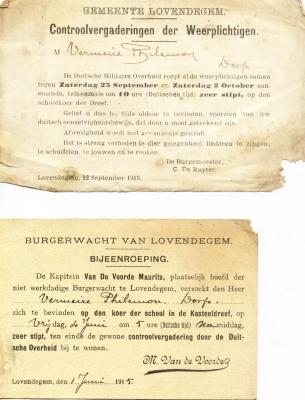 GEMEENTE LOVENDEGEM.
Controolvergaderingen der Weerplichtigen.
M Vermeire Philemon
Dorp
De Duitsche Militaire Overheid roept al de weerplichtigen samen
tegen Zaterdag 25 September en Zaterdag 2 October aan-
staande, telkenmale om 10 ure (Duitschen tijd) zeer stipt, op den
schoolkoer der Dreef.
Gelief u dus bij tijds aldaar te bevinden, voorzien van uw
duitsch eenzelvigheidsbewijs, dat door u moet geteekend zijn.
Afwezigheid wordt met gevangenis gestraft.
Het is streng verboden te dier gelegenheid liederen te zingen,
te schuifelen, te jouwen en te rooken.
De Burgemeester,
C. De Ruyter.
Lovendegem, 22 September 1915.
BURGERWACHT VAN LOVENDEGEM.
BIJEENROEPING.
De Kapitein Van De Voorde Maurits, plaatselijk hoofd der
niet werkdadige Burgerwacht te Lovendegem, verzoekt den Heer
Vermeire Philemon. Dorp.
zich te bevinden op den koer der school in de Kasteeldreef, op
Vrijdag, 4 Juni om 5 ure (Duitsche tijd) na middag,
zeer stipt, ten einde de gewone controolvergadering door de Duit-
sche Overheid bij te wonen.
M. Van de Voorde
Lovendegem, den 1 Juni 1915.